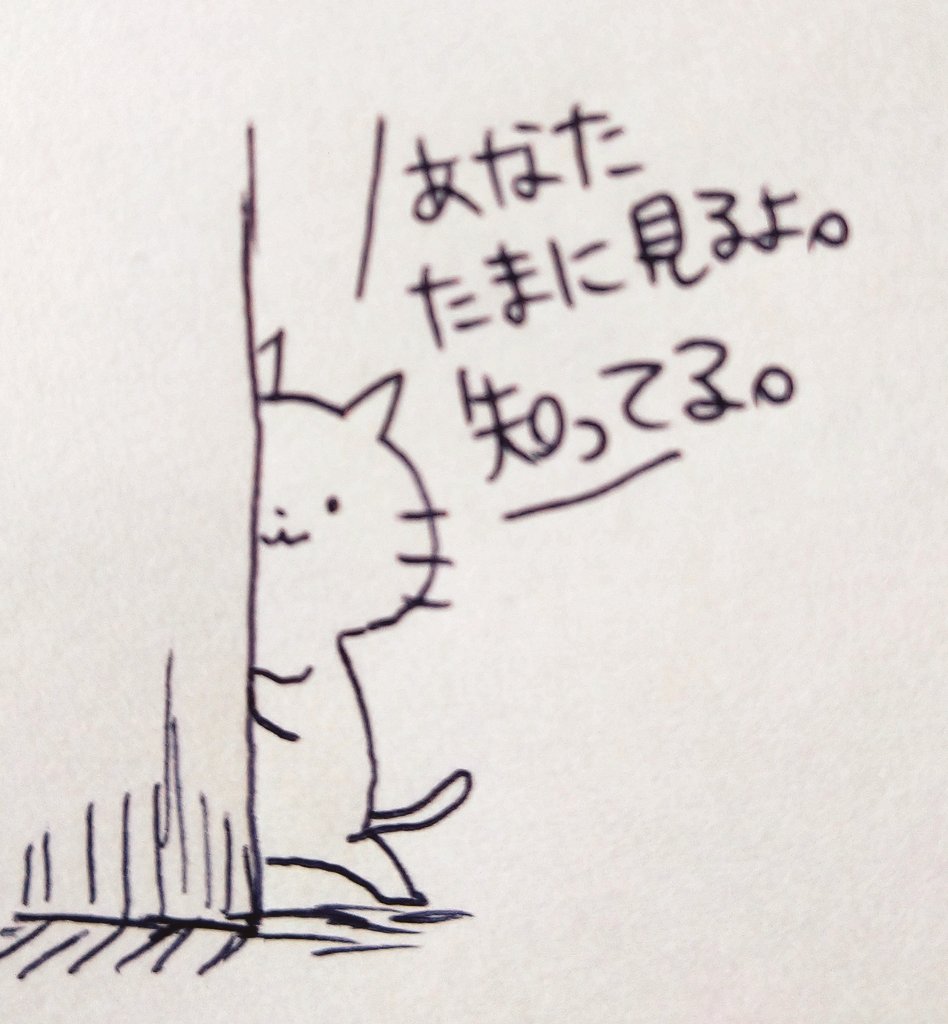 あなた
たまに見るよ。
知ってる。